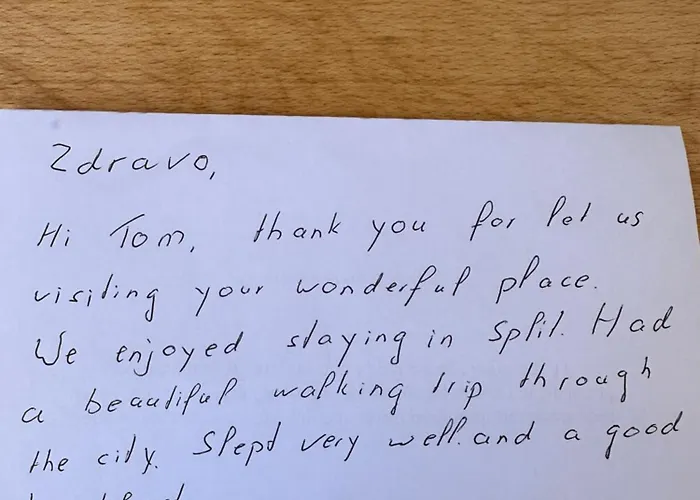 Zdravo,
Hi Tom, thank you for let us
visiting your wonderful place.
We enjoyed staying in Split. Had
a beautiful walking trip through
the city. Slept very well. and a good